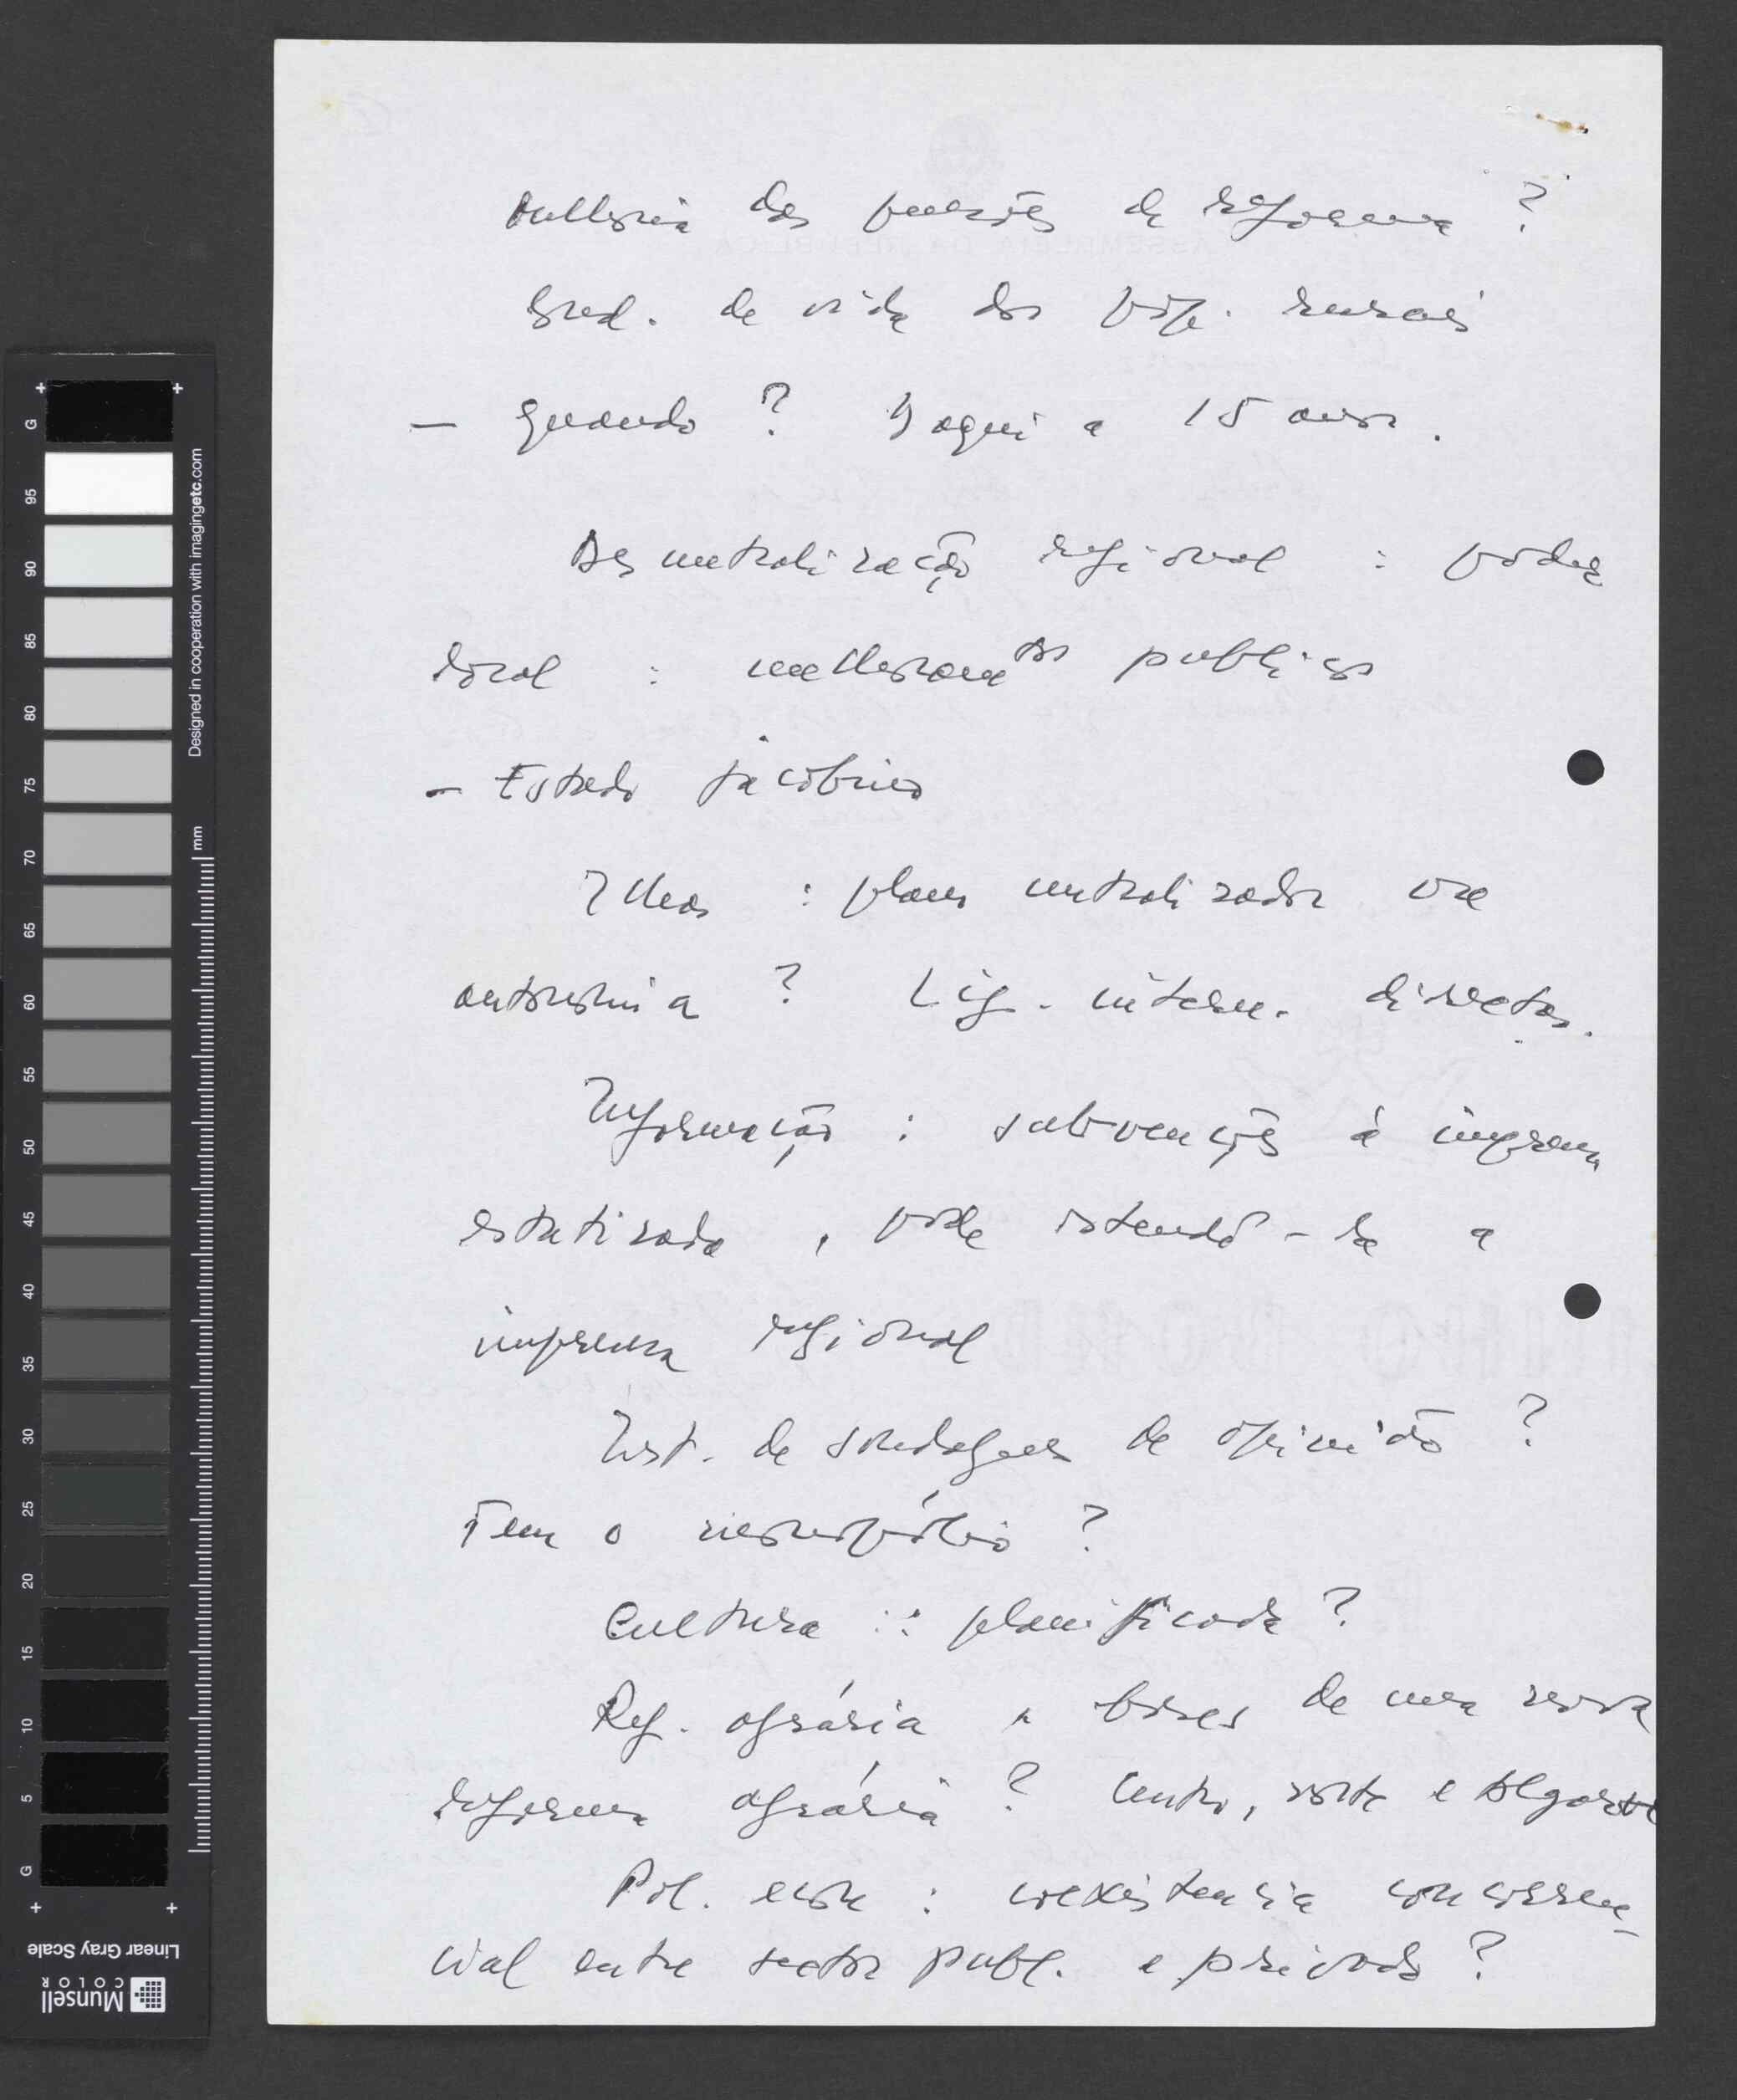 melhoria das pensões de reforma ?
Grad. de vida dos pop. rurais
— Quando ? Daqui a 15 anos.
Descentralização regional : poder
local : melhoramtos publicos
- Estado jacobino
Ilhas : plano centralizador ou
autonomia ? Lig. intern. directas.
Informação : subvenções à imprensa
estatizada , pode estendê-la a
imprensa regional
Inst. de sondagens de opinião ?
Tem o monopólio ?
Cultura : planificada ?
Ref. agrária a bases de uma nova
reforma agrária ? Centro, norte e Algarve
Pol. econ : coexistencia concorren-
cial entre sector publ. e privado ?
G 95 90 85 80 75 70 65 60 55 50 45 40 35 30 25 20 15 10 5 G
Designed in cooperation with imagingetc.com
mm
Linear Gray Scale
Munsell
COLOR
ASSEMBLEIA DA REPÚBLICA